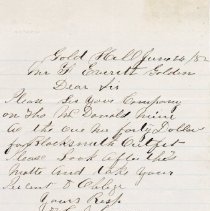 Gold Hill June 24 / 82
Mr F Everett Golden
Dear Sir
Please See your Company
on the McDonald Mine
As the owe me forty Dollar
for Blacksmith Outfit
Please Look After this
Matter and take your
Percent & Oblige
Yours Resp